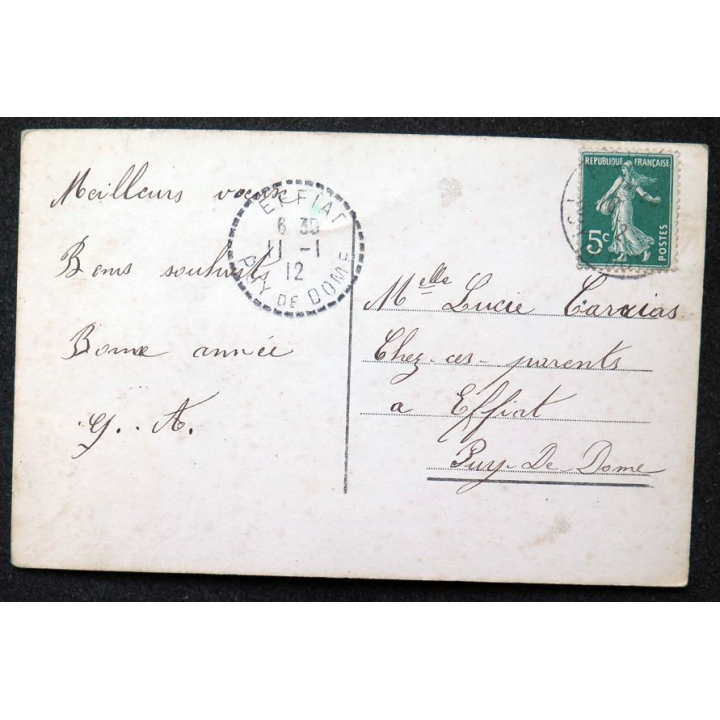 Meilleurs vœux
Bons souhaits
Bonne année
G. A.
EFFIAT
6 35
11 -1
12
PUY DE DOME
REPUBLIQUE FRANÇAISE
5c
POSTES
Melle Lucie
Chez-ces-parents
a Effiat
Puy-De-Dome